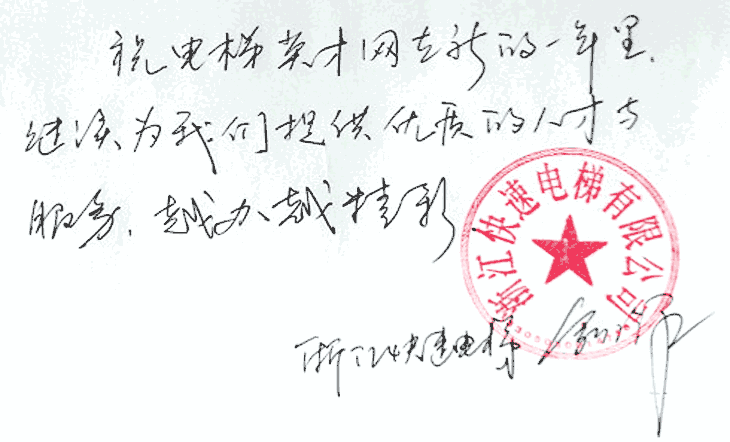 祝电梯英才网在新的一年里，
继续为我们提供优质的人才与
服务，越办越精彩
浙江快速电梯有限公司
浙江快速电梯